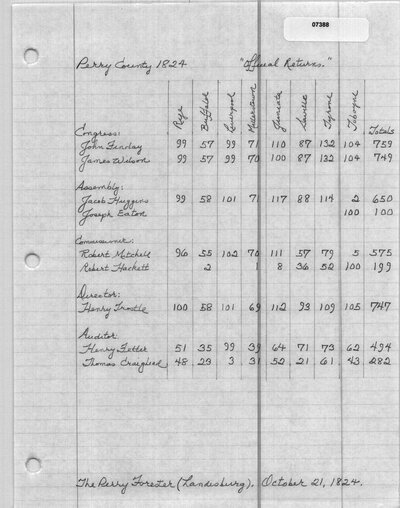 07388
Perry County 1824 "Official Returns."
Rye Buffalo Liverpool Millerstown Juniata Saville Tyrone Toboyne Totals
Congress:
John Findlay 99 57 99 71 110 87 132 104 759
James Wilson 99 57 99 70 100 87 132 104 749
Assembly:
Jacob Huggins 99 58 101 71 117 88 114 2 650
Joseph Eaton 100 100
Commissioner:
Robert Mitchell 96 55 102 70 111 57 79 5 575
Robert Hackett 2 1 8 36 52 100 199
Director:
Henry Trostle 100 58 101 69 112 93 109 105 747
Auditor:
Henry Fetter 51 35 99 39 64 71 73 62 494
Thomas Craighead 48 23 3 31 52 21 61 43 282
The Perry Forester (Landesburg). October 21, 1824.